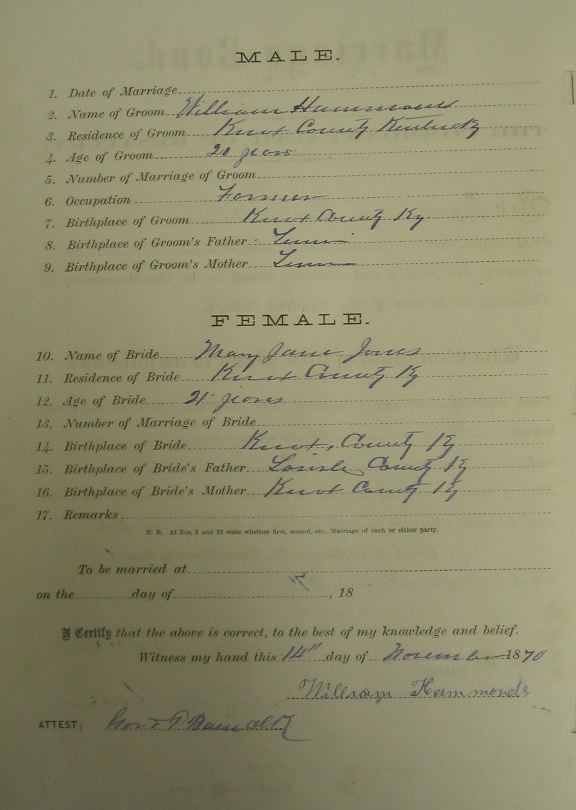 MALE.
1. Date of Marriage
2. Name of Groom William Hammons
3. Residence of Groom Knox County Kentucky
4. Age of Groom 21 years
5. Number of Marriage of Groom
6. Occupation Farmer
7. Birthplace of Groom Knox County Ky
8. Birthplace of Groom's Father
9. Birthplace of Groom's Mother
FEMALE.
10. Name of Bride Mary Jane Jones
11. Residence of Bride Knox County Ky
12. Age of Bride 21 years
13. Number of Marriage of Bride
14. Birthplace of Bride Knox County Ky
15. Birthplace of Bride's Father County Ky
16. Birthplace of Bride's Mother Knox County Ky
17. Remarks
N. B. At Nos. 5 and 13 state whether first, second, etc., Marriage of each or either party.
To be married at
on the day of , 18
I Certify that the above is correct, to the best of my knowledge and belief.
Witness my hand this 14" day of November 1870
William Hammonds
ATTEST: